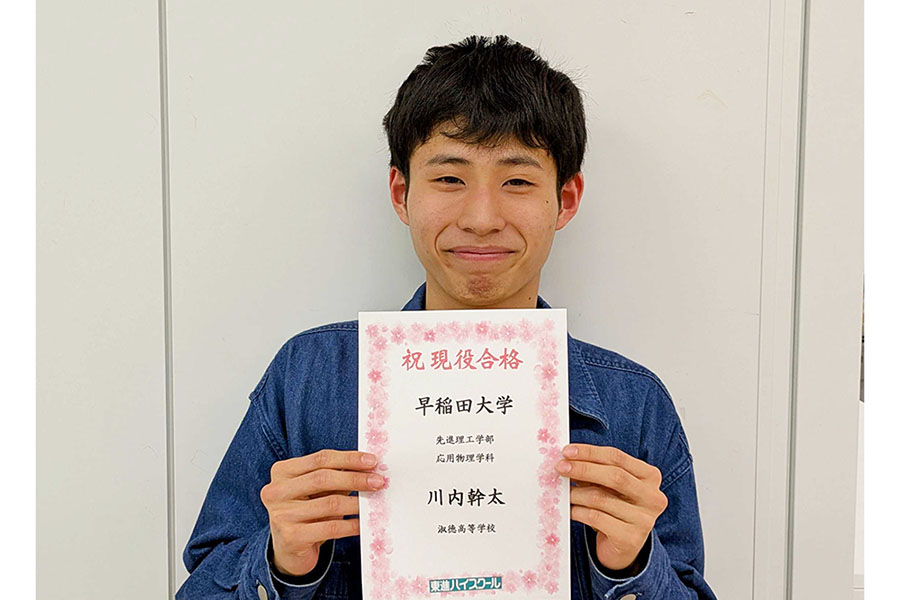 祝 現役合格
早稲田大学
先進理工学部
応用物理学科
川内幹太
淑徳高等学校
東進ハイスクール